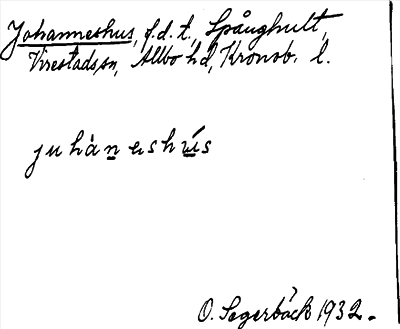 Johanneshus, f.d. t, Spånghult,
Virestads sn, Allbo hd, Kronob. l.
juhàneshús
O. Segerbäck 1932.